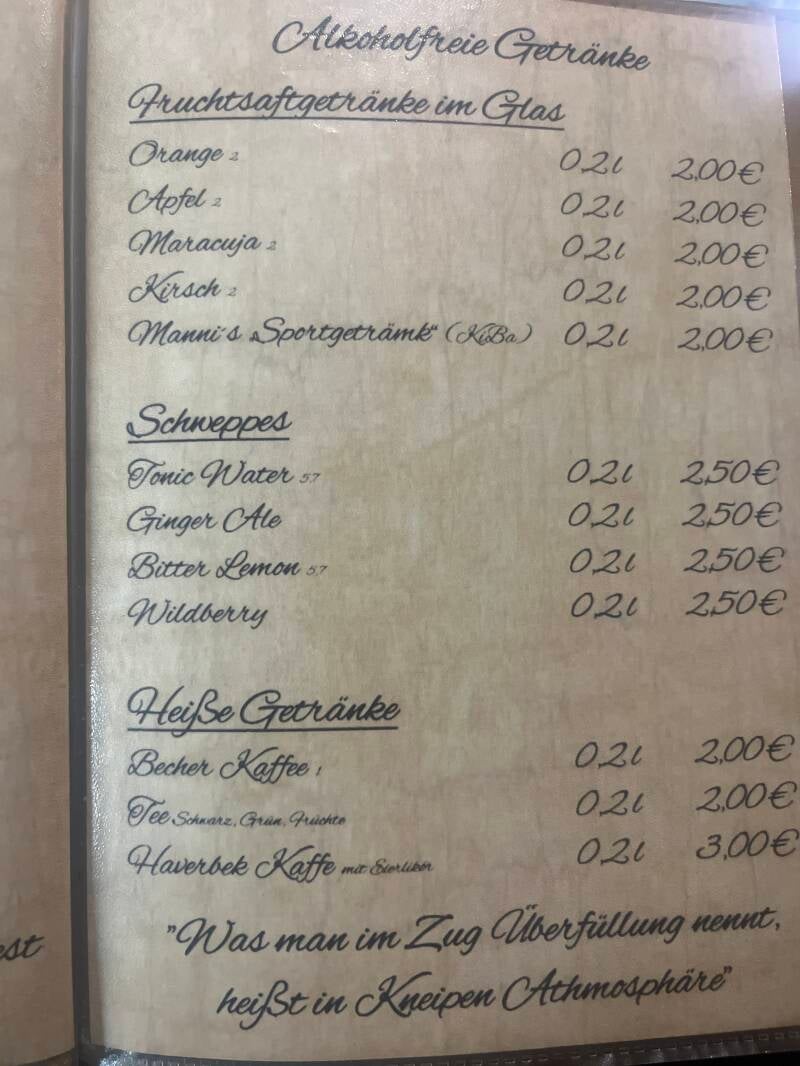 Alkoholfreie Getränke
Fruchtsaftgetränke im Glas
Orange 2 0,2l 2,00€
Apfel 2 0,2l 2,00€
Maracuja 2 0,2l 2,00€
Kirsch 2 0,2l 2,00€
Manni´s „Sportgeträmk“ (KiBa) 0,2l 2,00€
Schweppes
Tonic Water 5,7 0,2l 2,50€
Ginger Ale 0,2l 2,50€
Bitter Lemon 5,7 0,2l 2,50€
Wildberry 0,2l 2,50€
Heiße Getränke
Becher Kaffee 1 0,2l 2,00€
Tee Schwarz, Grün, Früchte 0,2l 2,00€
Haverbek Kaffe mit Eierlikör 0,2l 3,00€
"Was man im Zug Überfüllung nennt,
heißt in Kneipen Athmosphäre"
est